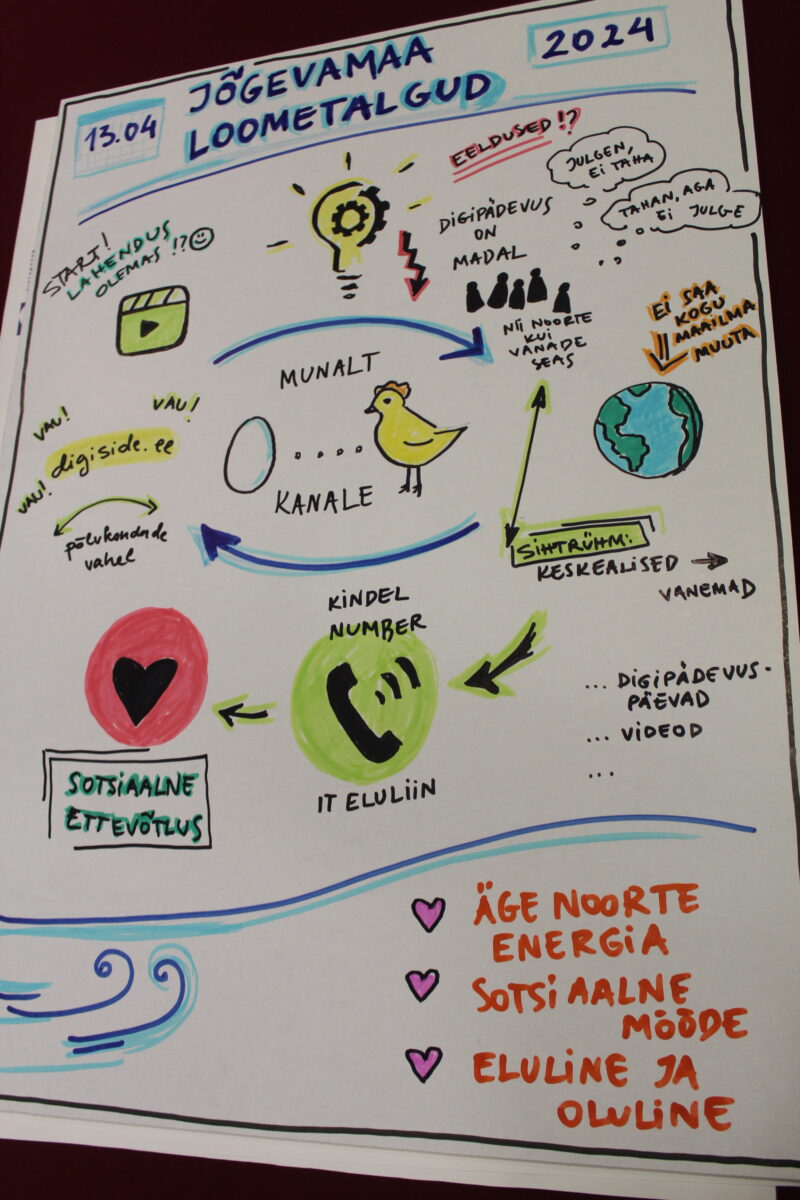 13.04
JÕGEVAMAA
LOOMETALGUD
2024
START!
LAHENDUS
OLEMAS !?
EELDUSED !?
JULGEN,
EI TAHA
TAHAN, AGA
EI JULGE
DIGIPÄDEVUS
ON
MADAL
NII NOORTE
KUI
VANADE
SEAS
EI SAA
KOGU
MAAILMA
MUUTA
MUNALT
....
KANALE
VAU!
VAU!
digiside.ee
VAU!
põlvkondade
vahel
SIHTRÜHM:
KESKEALISED →
VANEMAD
KINDEL
NUMBER
IT ELULIIN
... DIGIPÄDEVUS-
PÄEVAD
... VIDEOD
...
SOTSIAALNE
ETTEVÕTLUS
ÄGE NOORTE
ENERGIA
SOTSIAALNE
MÕÕDE
ELULINE JA
OLULINE